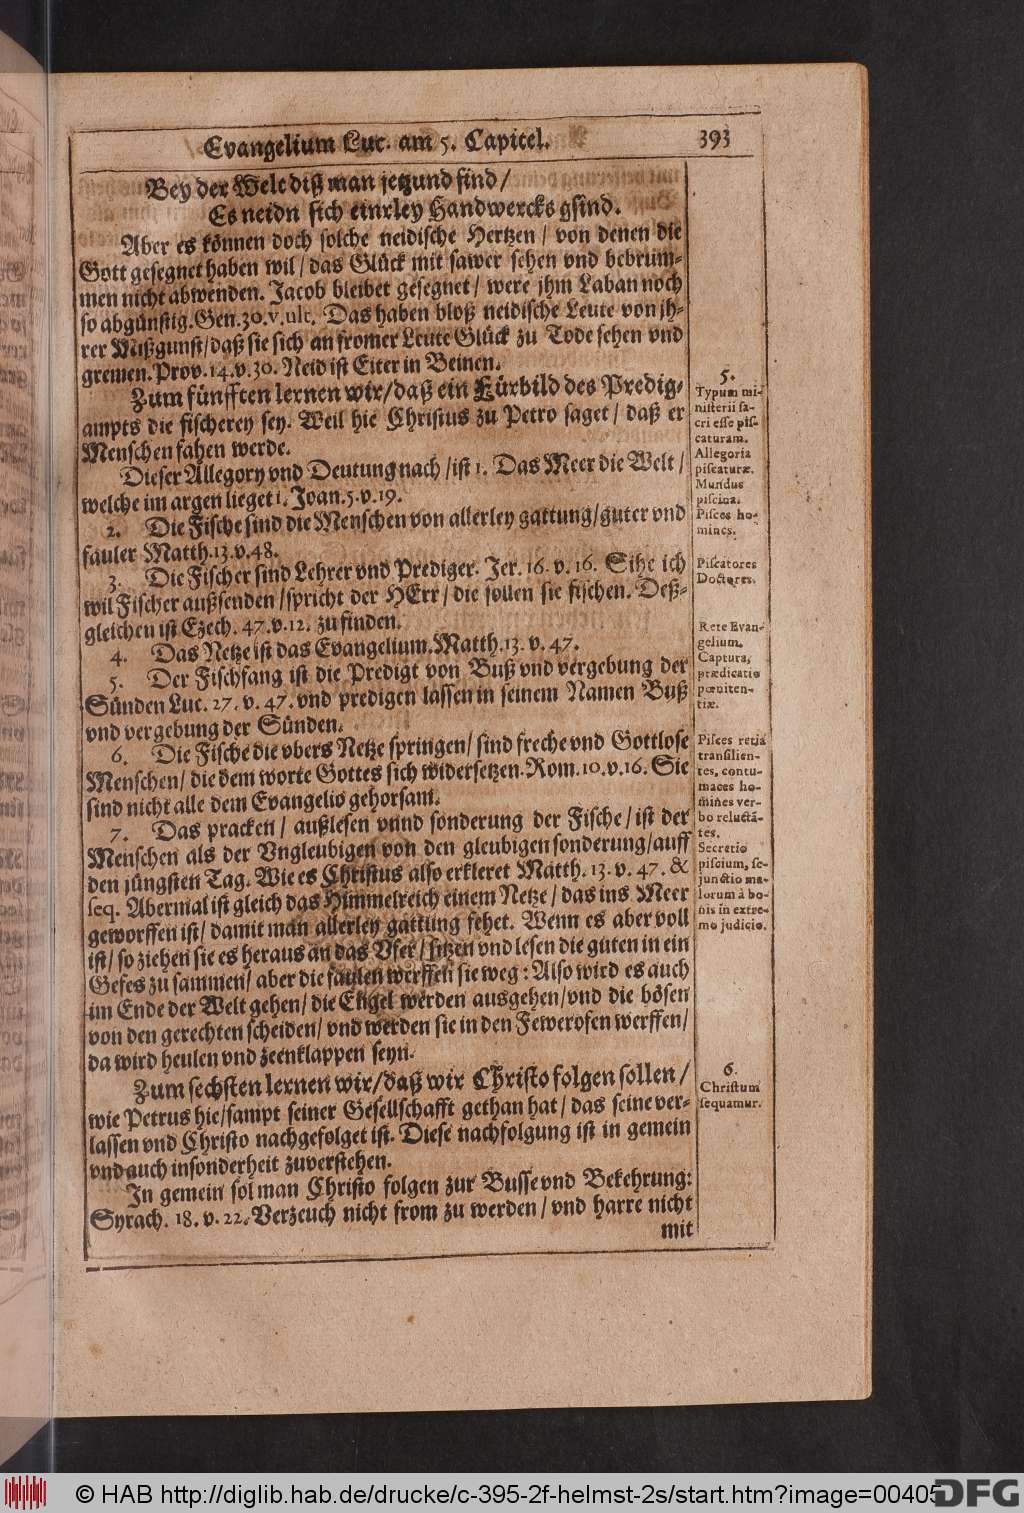 Evangelium Luc. am 5. Capitel. 393
Bey der Welt diß man jetzund find /
Es neidn sich einrley Handwercks gsind.
Aber es können doch solche neidische Hertzen / von denen die
Gott gesegnet haben wil / das Glück mit sawer sehen vnd bebrum-
men nicht abwenden. Jacob bleibet gesegnet / were jhm Laban noch
so abgünstig. Gen. 30. v. ult. Das haben bloß neidische Leute von jh-
rer Mißgunst / daß sie sich an fromer Leute Glück zu Tode sehen vnd
gremen. Prov. 14. v. 30. Neid ist Eiter in Beinen.
Zum fünfften lernen wir / daß ein Fürbild des Predig-
ampts die fischerey sey. Weil hie Christus zu Petro saget / daß er
Menschen fahen werde.
Dieser Allegory vnd Deutung nach / ist 1. Das Meer die Welt /
welche im argen lieget 1. Joan. 5. v. 19.
2. Die Fische sind die Menschen von allerley gattung / guter vnd
fauler Matth. 13. v. 48.
3. Die Fischer sind Lehrer vnd Prediger. Jer. 16. v. 16. Sihe ich
wil Fischer außsenden / spricht der HErr / die sollen sie fischen. Deß-
gleichen ist Ezech. 47. v. 12. zu finden.
4. Das Netze ist das Evangelium. Matth. 13. v. 47.
5. Der Fischfang ist die Predigt von Buß vnd vergebung der
Sünden Luc. 27. v. 47. vnd predigen lassen in seinem Namen Buß
vnd vergebung der Sünden.
6. Die Fische die vbers Netze springen / sind freche vnd Gottlose
Menschen / die dem worte Gottes sich widersetzen. Rom. 10. v. 16. Sie
sind nicht alle dem Evangelio gehorsam.
7. Das pracken / außlesen vnnd sonderung der Fische / ist der
Menschen als der Vngleubigen von den gleubigen sonderung / auff
den jüngsten Tag. Wie es Christus also erkleret Matth. 13. v. 47. &
seq. Abermal ist gleich das Himmelreich einem Netze / das ins Meer
geworffen ist / damit man allerley gattung fehet. Wenn es aber voll
ist / so ziehen sie es heraus an das Vfer / sitzen vnd lesen die guten in ein
Gefes zusammen / aber die faulen werffen sie weg: Also wird es auch
im Ende der Welt gehen / die Engel werden ausgehen / vnd die bösen
von den gerechten scheiden / vnd werden sie in den Fewerofen werffen /
da wird heulen vnd zeenklappen seyn.
Zum sechsten lernen wir / daß wir Christo folgen sollen /
wie Petrus hie / sampt seiner Gesellschafft gethan hat / das seine ver-
lassen vnd Christo nachgefolget ist. Diese nachfolgung ist in gemein
vnd auch insonderheit zuverstehen.
In gemein sol man Christo folgen zur Busse vnd Bekehrung:
Syrach. 18. v. 22. Verzeuch nicht from zu werden / vnd harre nicht
mit
5.
Typum mi-
nisterii sa-
cri esse pis-
caturam.
Allegoria
piscaturæ.
Mundus
piscina.
Pisces ho-
mines.
Piscatores
Doctores.
Rete Evan-
gelium.
Captura,
prædicatio
pœniten-
tiæ.
Pisces retia
transilien-
tes, contu-
maces ho-
mines ver-
bo reluctā-
tes.
Secretio
piscium, se-
junctio ma-
lorum à bo-
nis in extre-
mo judicio.
6.
Christum
sequamur.
© HAB http://diglib.hab.de/drucke/c-395-2f-helmst-2s/start.htm?image=00405
DFG